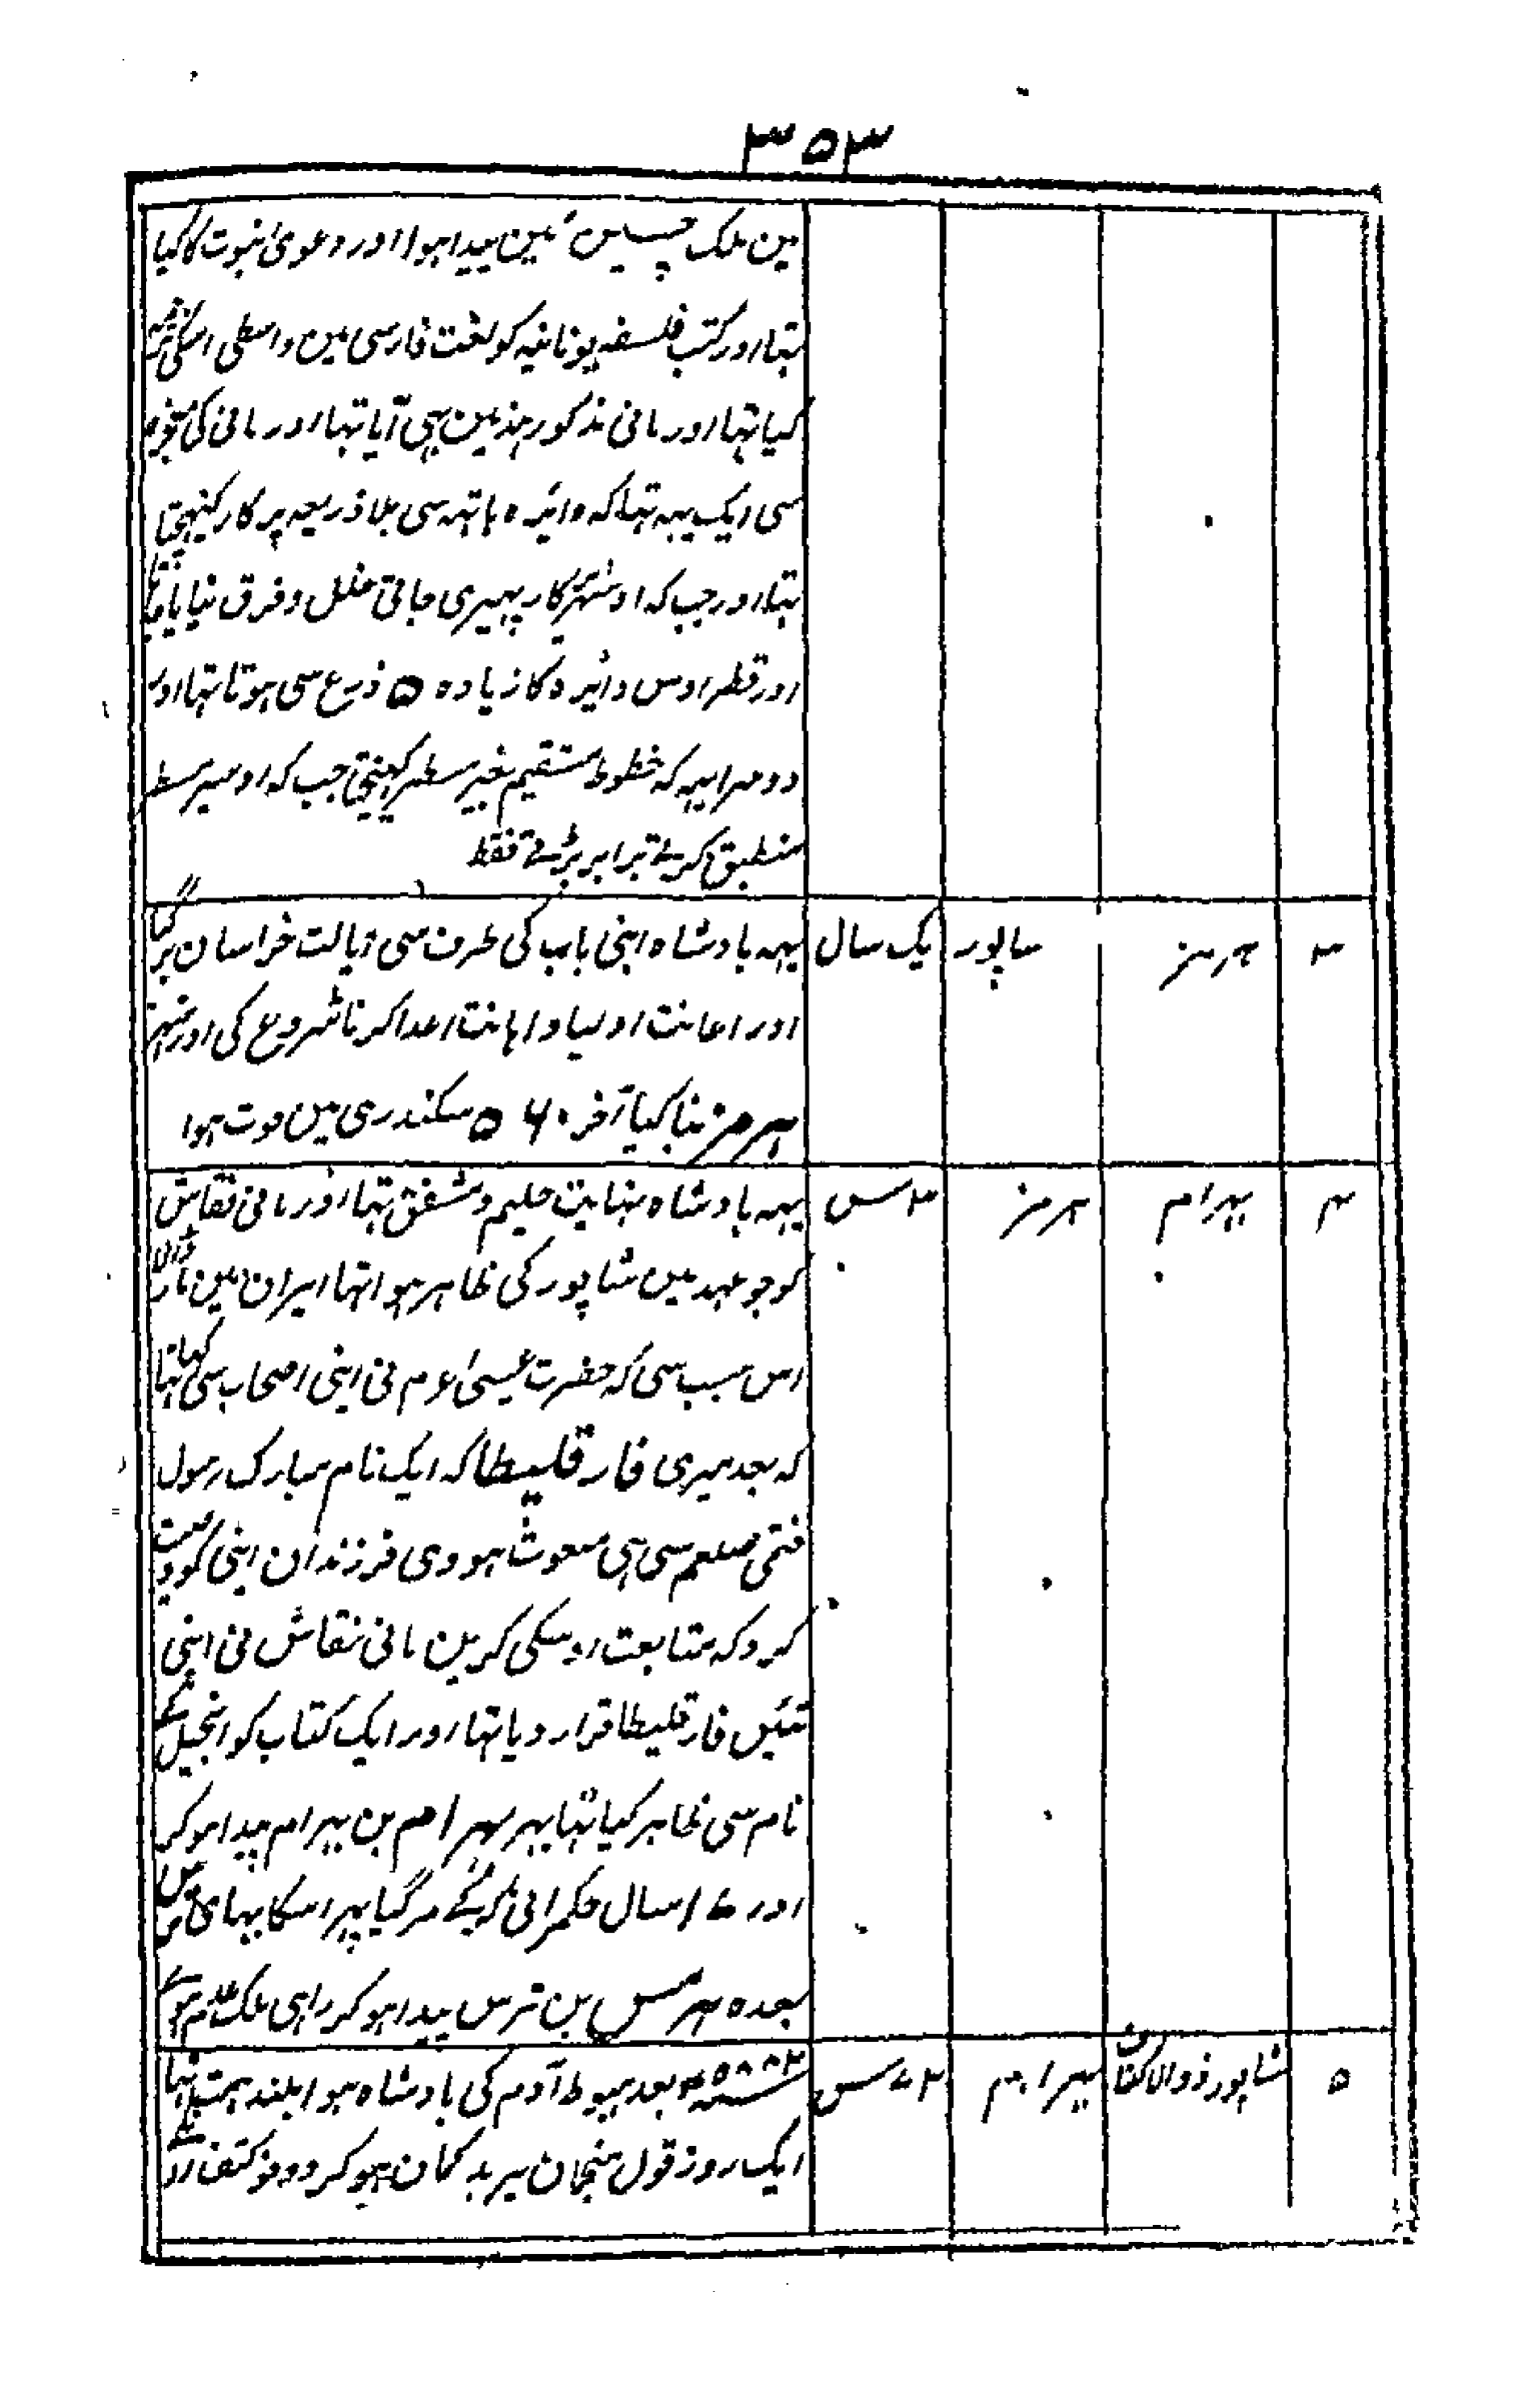 ۳۵۳
مین ملک چیس ئین پیدا ہوا اور دعوی نبوت کا کیا
تہا اور کتب فلسفہ یونانیہ کو لغت فارسی مین واسطی اسکی ترجمہ
کیا تہا اور مانی مذکور ہند مین بہی آیا تہا اور مانی کی
سی ایک یہہ تہا کہ دائرہ ہاتہہ سی بلا ذریعہ پرکار کہنیچتا
تہا اور جب کہ اوسپر پرکار پہیری جاتی خلل و فرق نپایا جاتا
اور قطر اوس دائرہ کا زیادہ ۵ ذرع سی ہوتا تہا اور
دوسرا یہہ کہ خطوط مستقیم بغیر مسطر کہینچتی جب کہ اوسپر مسطر
منطبق کرتے برابر پڑتے فقط
۳ ہرمز ساپور یک سال یہہ بادشاہ اپنی باپ کی طرف سی ایالت خراسان پر گیا
اور اعانت اولیا و اہانت اعدا کرنا شروع کی اور شہر
ہرمز بنا کیا آخر ۵۶۰ سکندری مین فوت ہوا
۴ بہرام ہرمز ۳ س یہہ بادشاہ نہایت حلیم و مشفق تہا اور مانی نقاش
کو جو عہد مین شاپور کی ظاہر ہوا تہا ایران مین مار ڈالا
اس سبب سی کہ حضرت عیسیٰ ع م نی اپنی اصحاب سی کہا تہا
کہ بعد میری فارقلیطا کہ ایک نام مبارک رسول
ختمی صلعم سی ہی مبعوث ہووی فرزندان اپنی کو وصیت
کرو کہ متابعت اوسکی کرین مانی نقاش نی اپنی
تئین فارقلیطا قرار دیا تہا اور ایک کتاب کو انجیل کے
نام سی ظاہر کیا تہا پہر بہرام بن بہرام پیدا ہو کر
اور ۱۷ سال حکمرانی کرکے مر گیا پہر اسکا بہای
بعدہ ہرمس بن نرس پیدا ہو کر راہی ملک عدم ہوے
۵ شاپور ذوالاکتاف بہرام ۷۲ س بعد ہبوط آدم کی بادشاہ ہوا بلند ہمت تہا
ایک روز قول منجمان پر بدگمان ہو کر دونو کتف